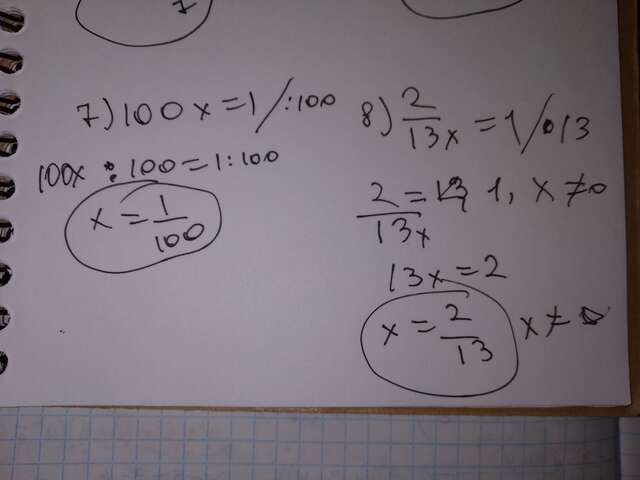 7
7) 100x = 1 /:100
100x : 100 = 1 : 100
x = 1/100
8) 2/13x = 1 /•13
2/13x = 1, x ≠ 0
13x = 2
x = 2/13 x ≠ 0